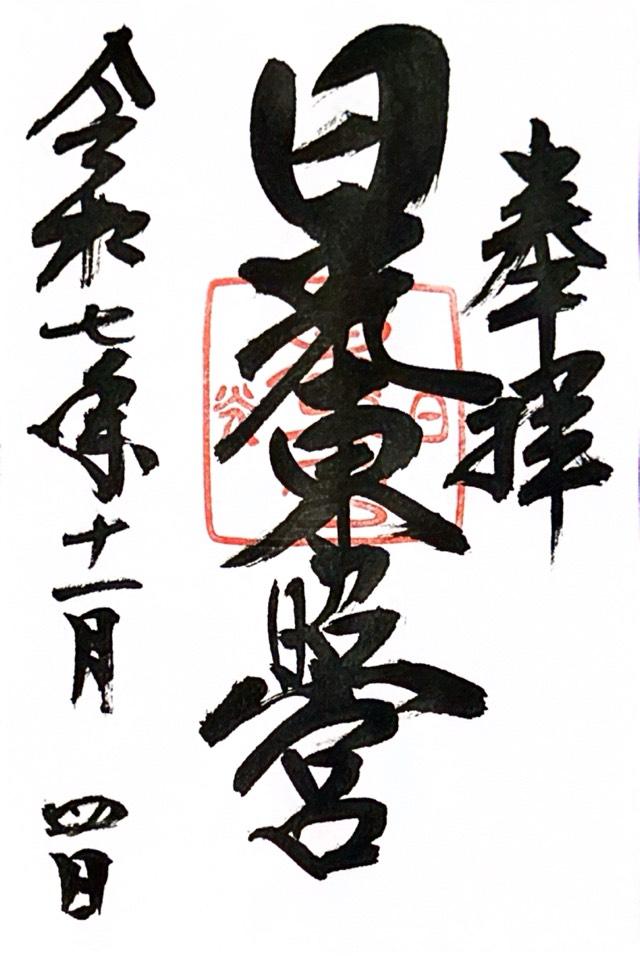 奉拝
日光東照宮
令和七年十一月 四日